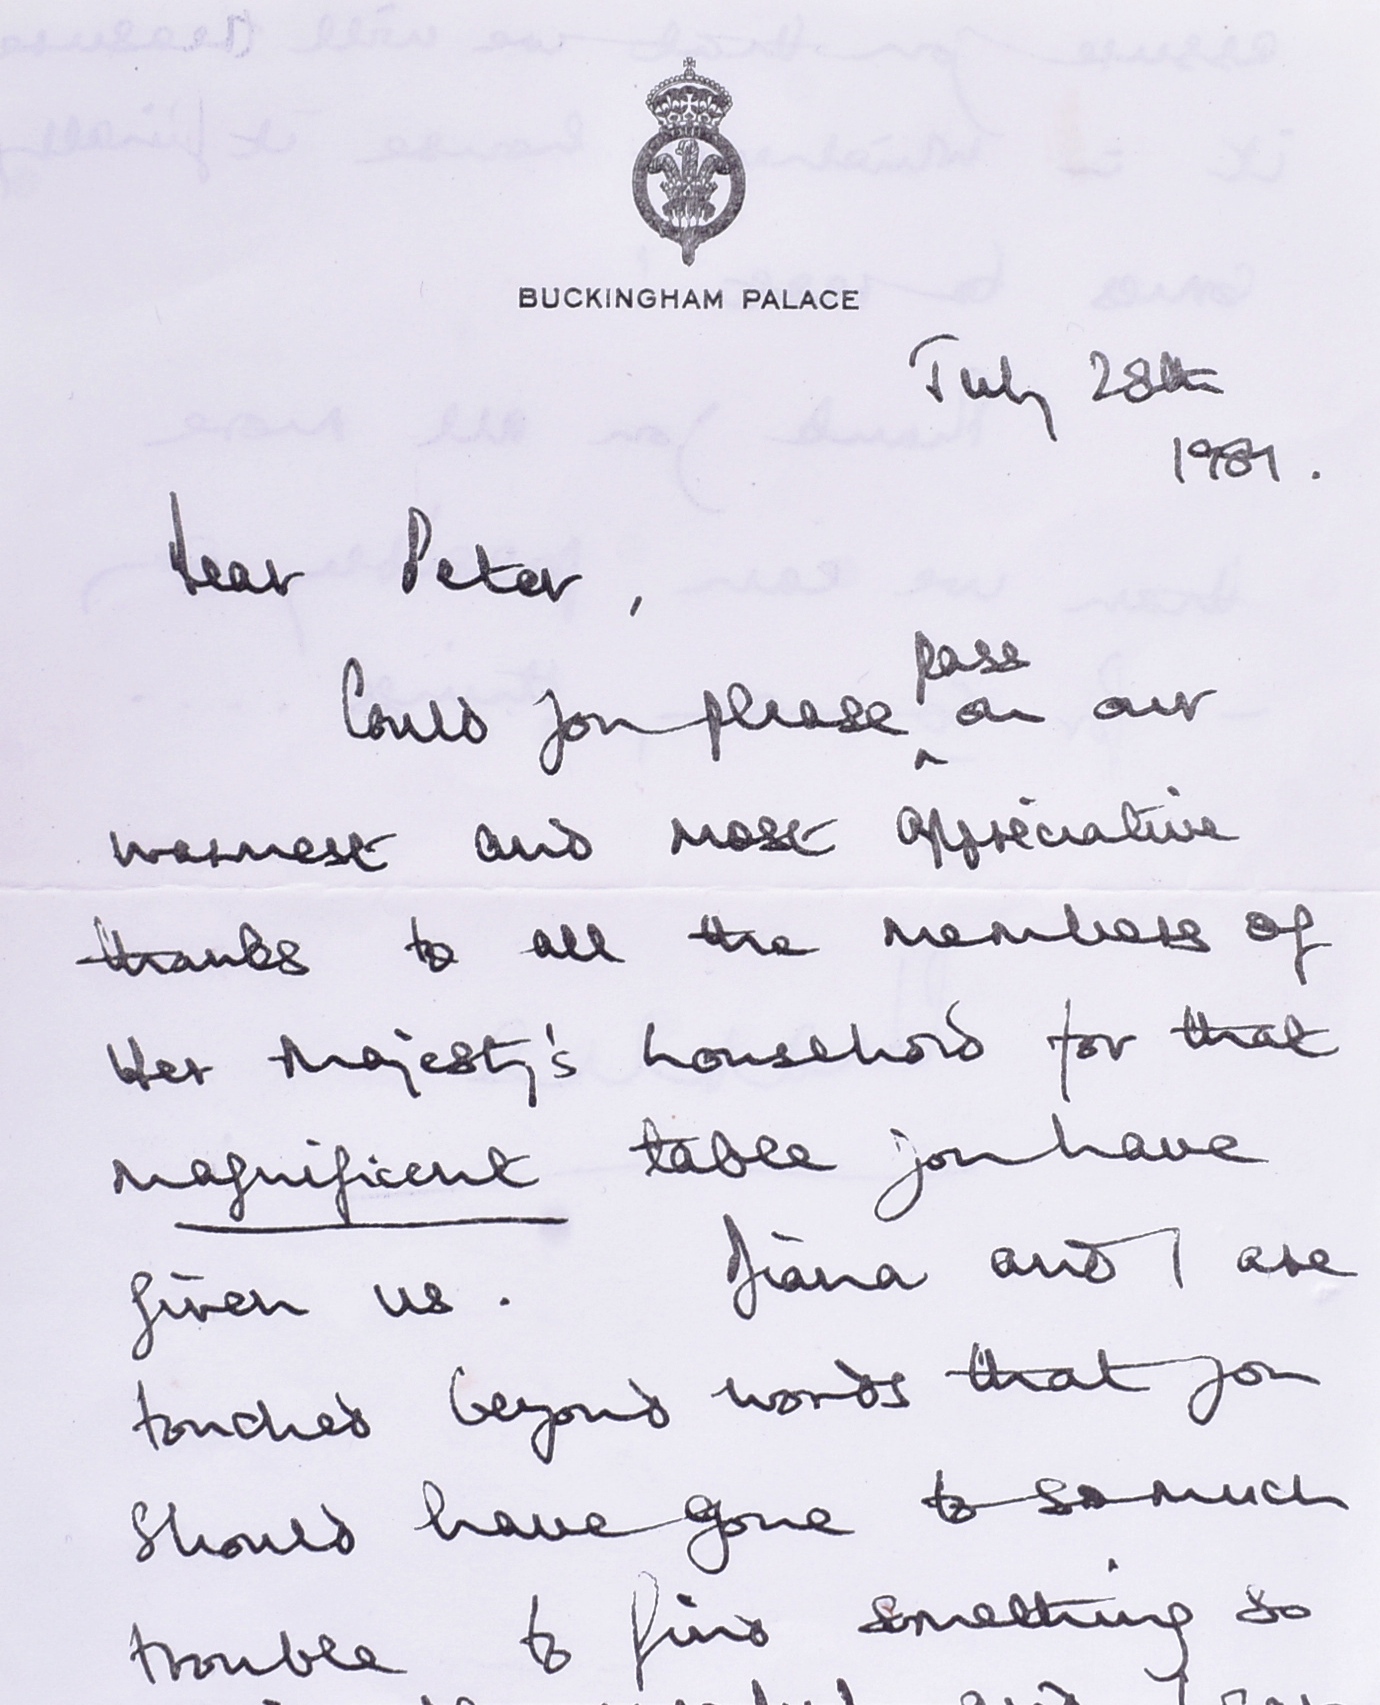 BUCKINGHAM PALACE
July 28th
1981.
Dear Peter,
pass
Could you please ^ on our
warmest and most appreciative
thanks to all the members of
Her Majesty's household for that
magnificent table you have
given us. Diana and I are
touched beyond words that you
should have gone to so much
trouble to find something so